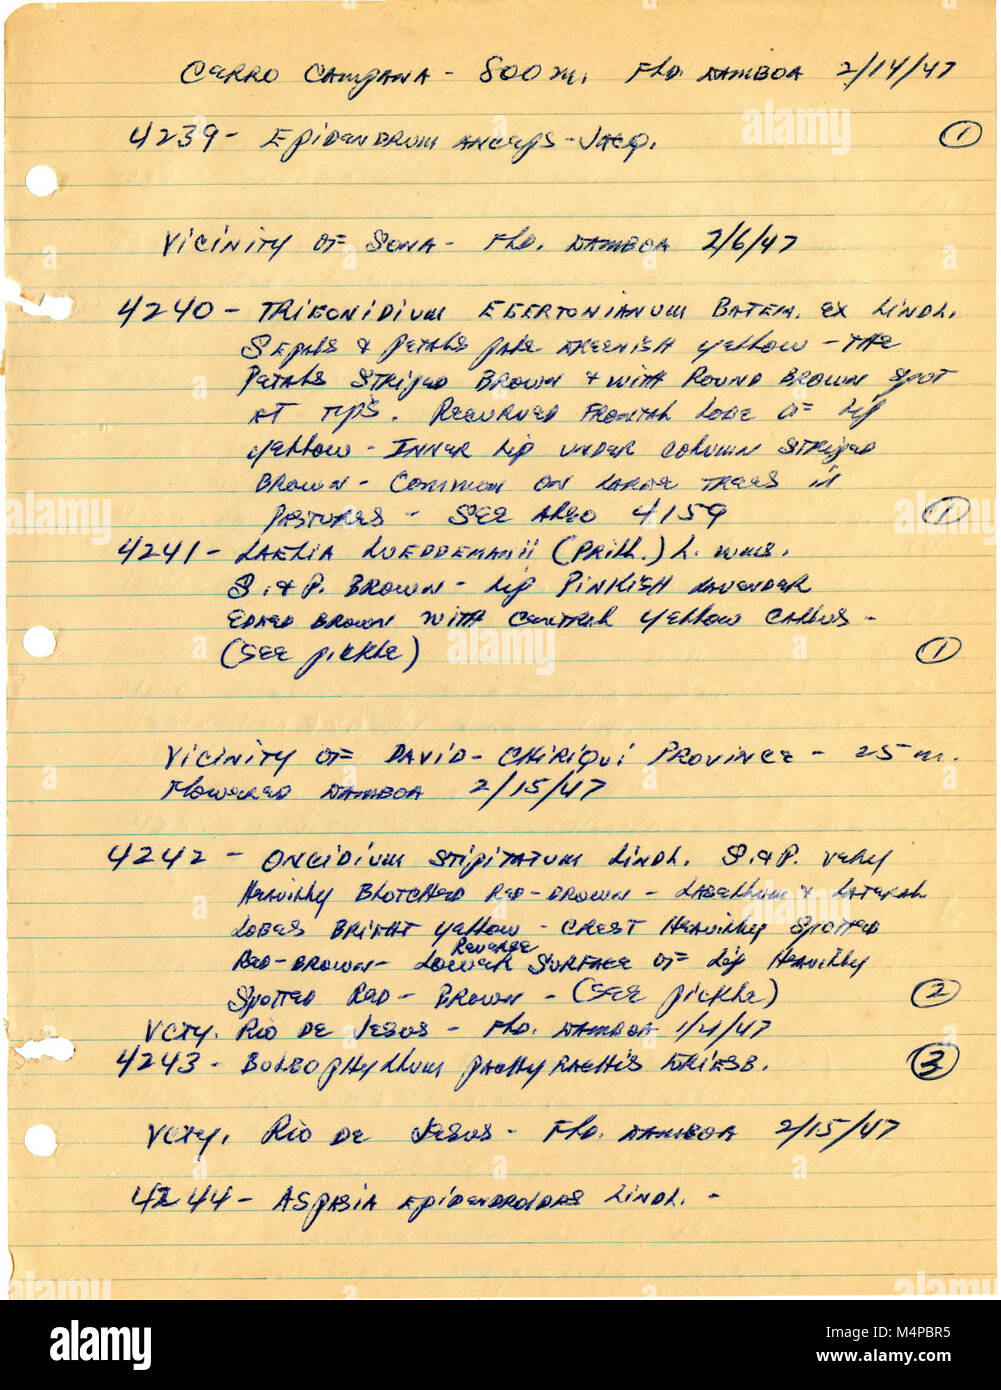 Cerro Campana - 800 m. Fld. Gamboa 2/14/47
4239 - Epidendrum anceps - Jacq. ①
Vicinity of Sona - Fld. Gamboa 2/6/47
4240 - Trigonidium Egertonianum Batem. ex Lindl.
Sepals & petals pale greenish yellow - the
petals striped brown & with round brown spot
at tips. Recurved frontal lobe of lip
yellow - Inner lip under column striped
brown - Common on large trees in
pastures - See also 4159 ①
4241 - Laelia Lueddemanii (Prill.) L. Wms.
S. & P. brown - lip pinkish lavender
edged brown with central yellow callus -
(See pickle) ①
Vicinity of David - Chiriqui Province - 25 m.
Flowered Gamboa 2/15/47
4242 - Oncidium stipitatum Lindl. S. & P. very
heavilly blotched red-brown - Labellum & lateral
lobes bright yellow - crest heavilly spotted
Reverse
red-brown - Lower surface of lip heavilly
spotted red - brown - (See pickle) ②
Vcty. Rio de Jesus - Fld. Gamboa 1/4/47
4243 - Bulbophyllum pachyrachis Griesb. ③
Vcty. Rio de Jesus - Fld. Gamboa 2/15/47
4244 - Aspasia epidendroides Lindl. -
alamy
Image ID: M4PBR5
www.alamy.com